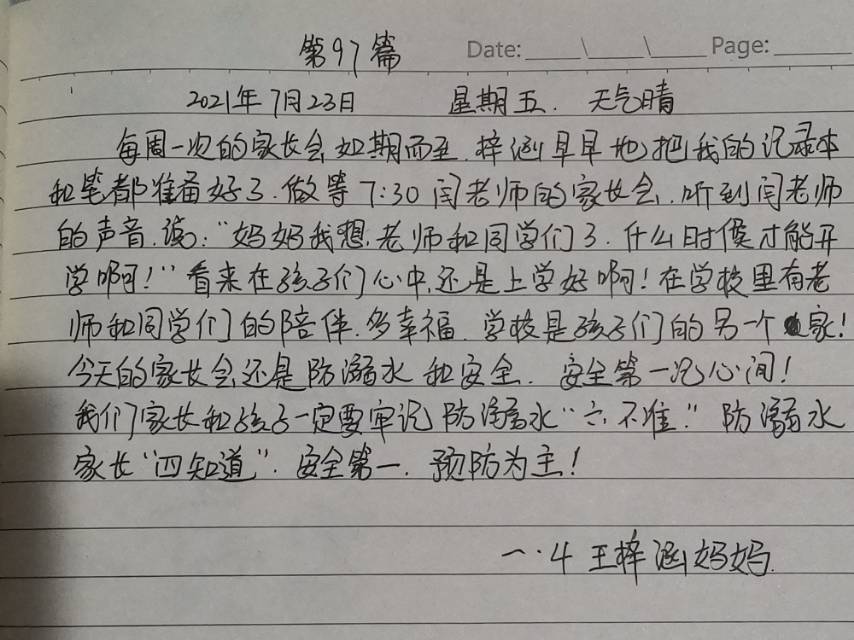 第97篇 Date: ____\____\____ Page: ______
2021年7月23日 星期五. 天气晴
每周一次的家长会如期而至.梓涵早早地把我的记录本
和笔都准备好了.做等7:30闫老师的家长会.听到闫老师
的声音.说:"妈妈我想.老师和同学们了.什么时候才能开
学啊!"看来在孩子们心中,还是上学好啊!在学校里有老
师和同学们的陪伴.多幸福.学校是孩子们的另一个家!
今天的家长会还是防溺水和安全.安全第一记心间!
我们家长和孩子一定要牢记防溺水"六不准."防溺水
家长"四知道".安全第一.预防为主!
一.4 王梓涵妈妈.